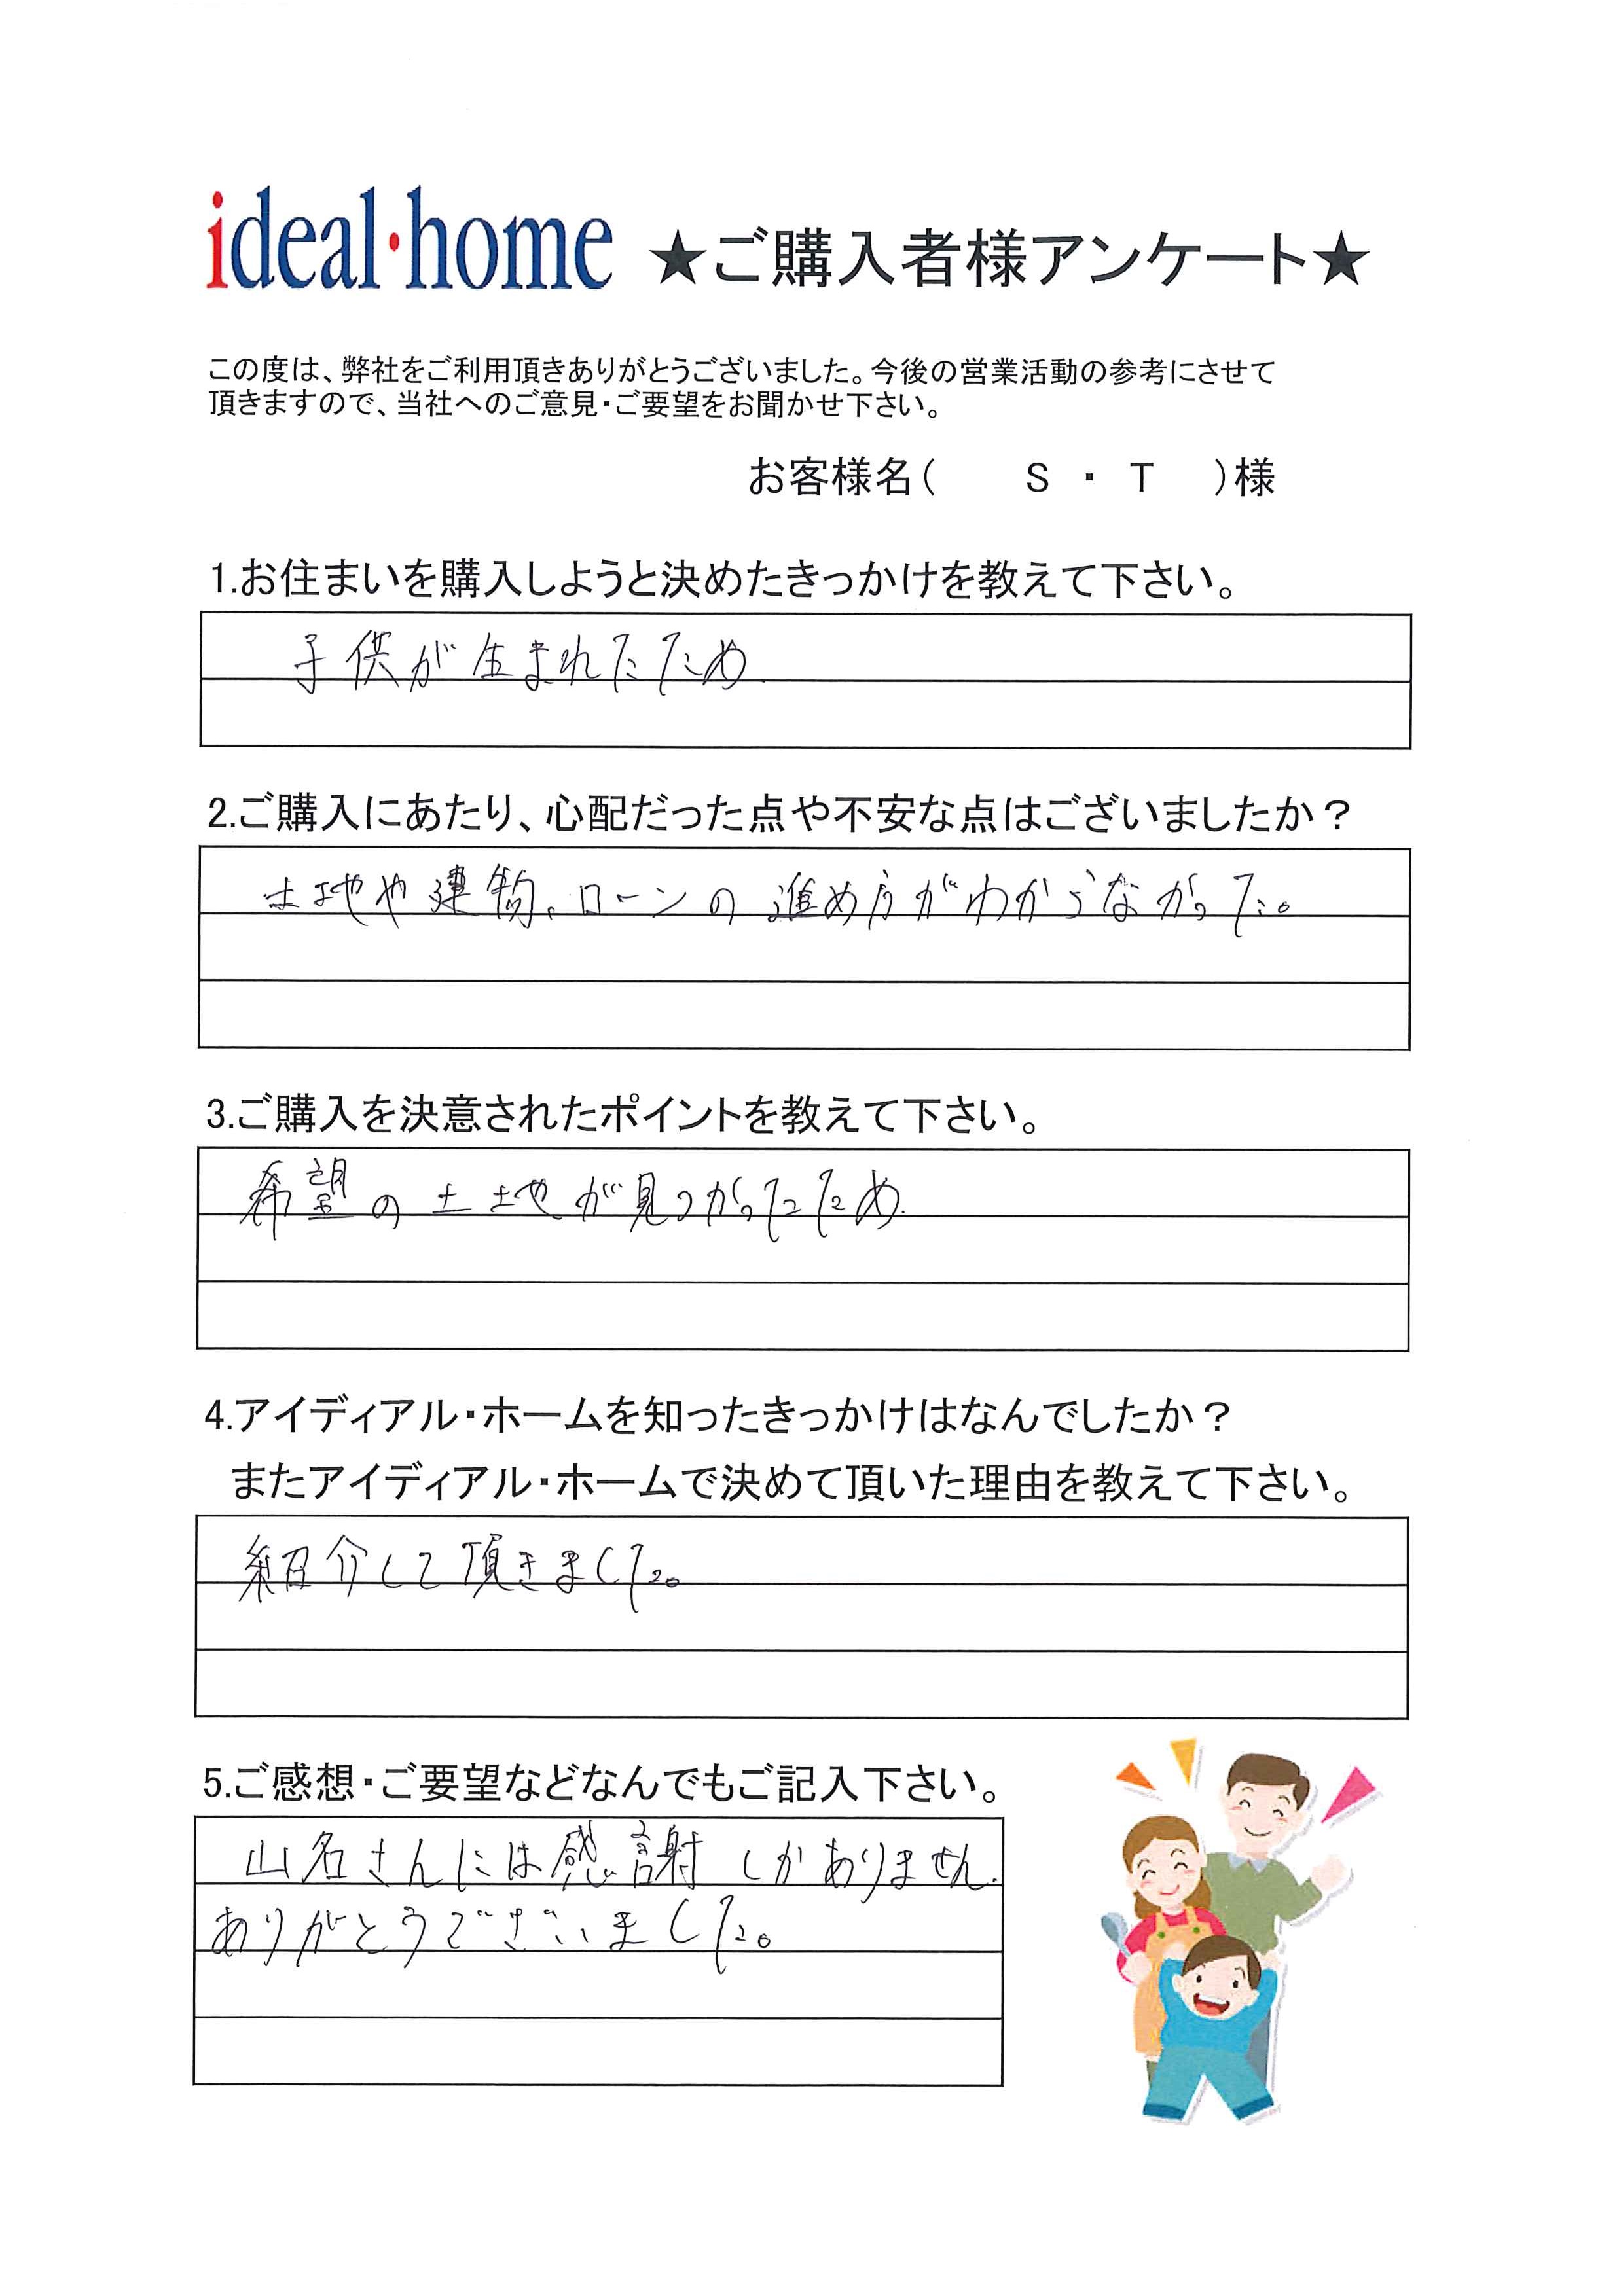 ideal・home ★ご購入者様アンケート★
この度は、弊社をご利用頂きありがとうございました。今後の営業活動の参考にさせて
頂きますので、当社へのご意見・ご要望をお聞かせ下さい。
お客様名( S ・ T )様
1.お住まいを購入しようと決めたきっかけを教えて下さい。
子供が生まれたため.
2.ご購入にあたり、心配だった点や不安な点はございましたか？
土地や建物、ローンの進め方がわからなかった。
3.ご購入を決意されたポイントを教えて下さい。
希望の土地が見つかったため.
4.アイディアル・ホームを知ったきっかけはなんでしたか？
またアイディアル・ホームで決めて頂いた理由を教えて下さい。
紹介して頂きました。
5.ご感想・ご要望などなんでもご記入下さい。
山名さんには感謝しかありません.
ありがとうでございました。